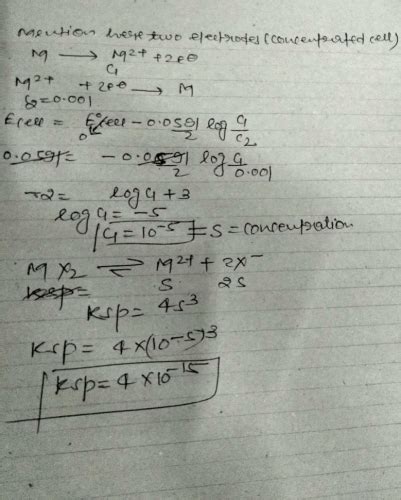 Mention here two electrodes (concentrated cell)
M ⟶ M²⁺ + 2e⊖
C₁
M²⁺ + 2e⊖ ⟶ M
C₂=0.001
Ecell = E°cell - 0.0591/2 log C₁/C₂
0
0.0591 = - 0.0591/2 log C₁/0.001
-2 = log C₁ + 3
log C₁ = -5
C₁ = 10⁻⁵ = S = concentration
MX₂ ⇌ M²⁺ + 2X⁻
Ksp= S 2S
Ksp = 4S³
Ksp = 4×(10⁻⁵)³
Ksp = 4×10⁻¹⁵